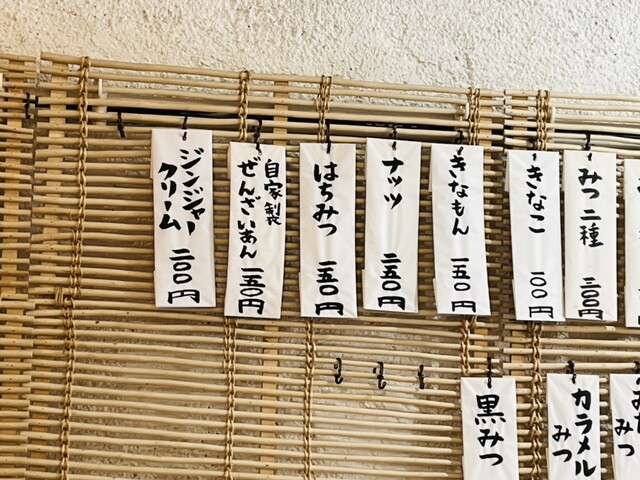 みつ二種
三〇〇円
きなこ
一〇〇円
きなもん
一五〇円
ナッツ
二五〇円
はちみつ
一五〇円
自家製
ぜんざいあん
一五〇円
ジンジャー
クリーム
二〇〇円
みつ
カラメル
みつ
黒みつ